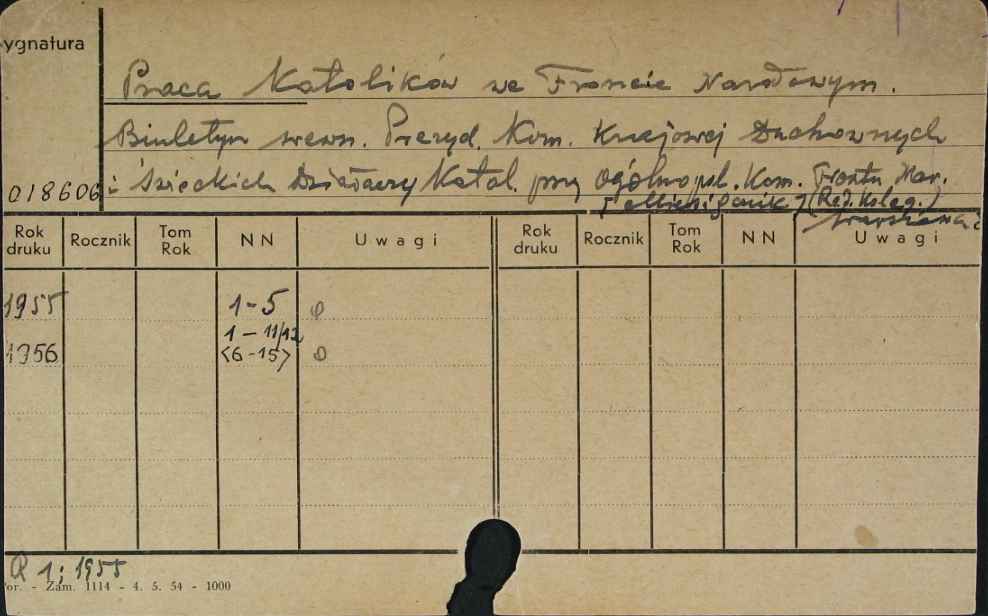 ygnatura
Praca Katolików we Froncie Narodowym.
Biuletyn wewn. Prezyd. Kom. Krajowej Duchownych
018606 i Świeckich Działaczy Katol. przy Ogólnopol. Kom. Frontu Nar.
[Miesięcznik] (Red. Koleg.)
Warszawa
Rok druku Rocznik Tom Rok NN Uwagi Rok druku Rocznik Tom Rok NN Uwagi
1955 1-5
1-11/12
1956 <6-15>
R 1; 1955
or. - Zam. 1114 - 4. 5. 54 - 1000